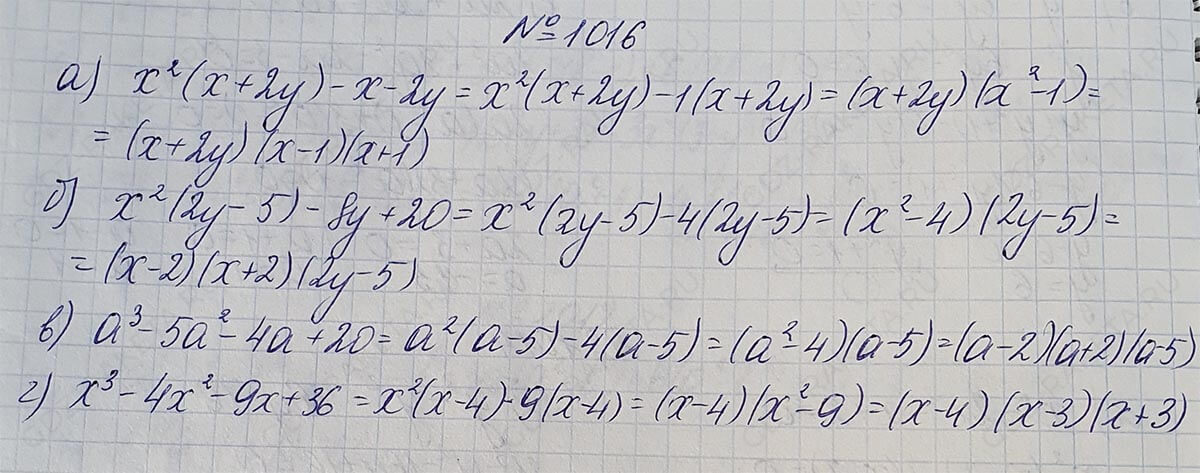 №1016
а) x²(x+2y)-x-2y=x²(x+2y)-1(x+2y)=(x+2y)(x²-1)=
=(x+2y)(x-1)(x+1)
б) x²(2y-5)-8y+20=x²(2y-5)-4(2y-5)=(x²-4)(2y-5)=
=(x-2)(x+2)(2y-5)
в) a³-5a²-4a+20=a²(a-5)-4(a-5)=(a²-4)(a-5)=(a-2)(a+2)(a-5)
г) x³-4x²-9x+36=x²(x-4)-9(x-4)=(x-4)(x²-9)=(x-4)(x-3)(x+3)